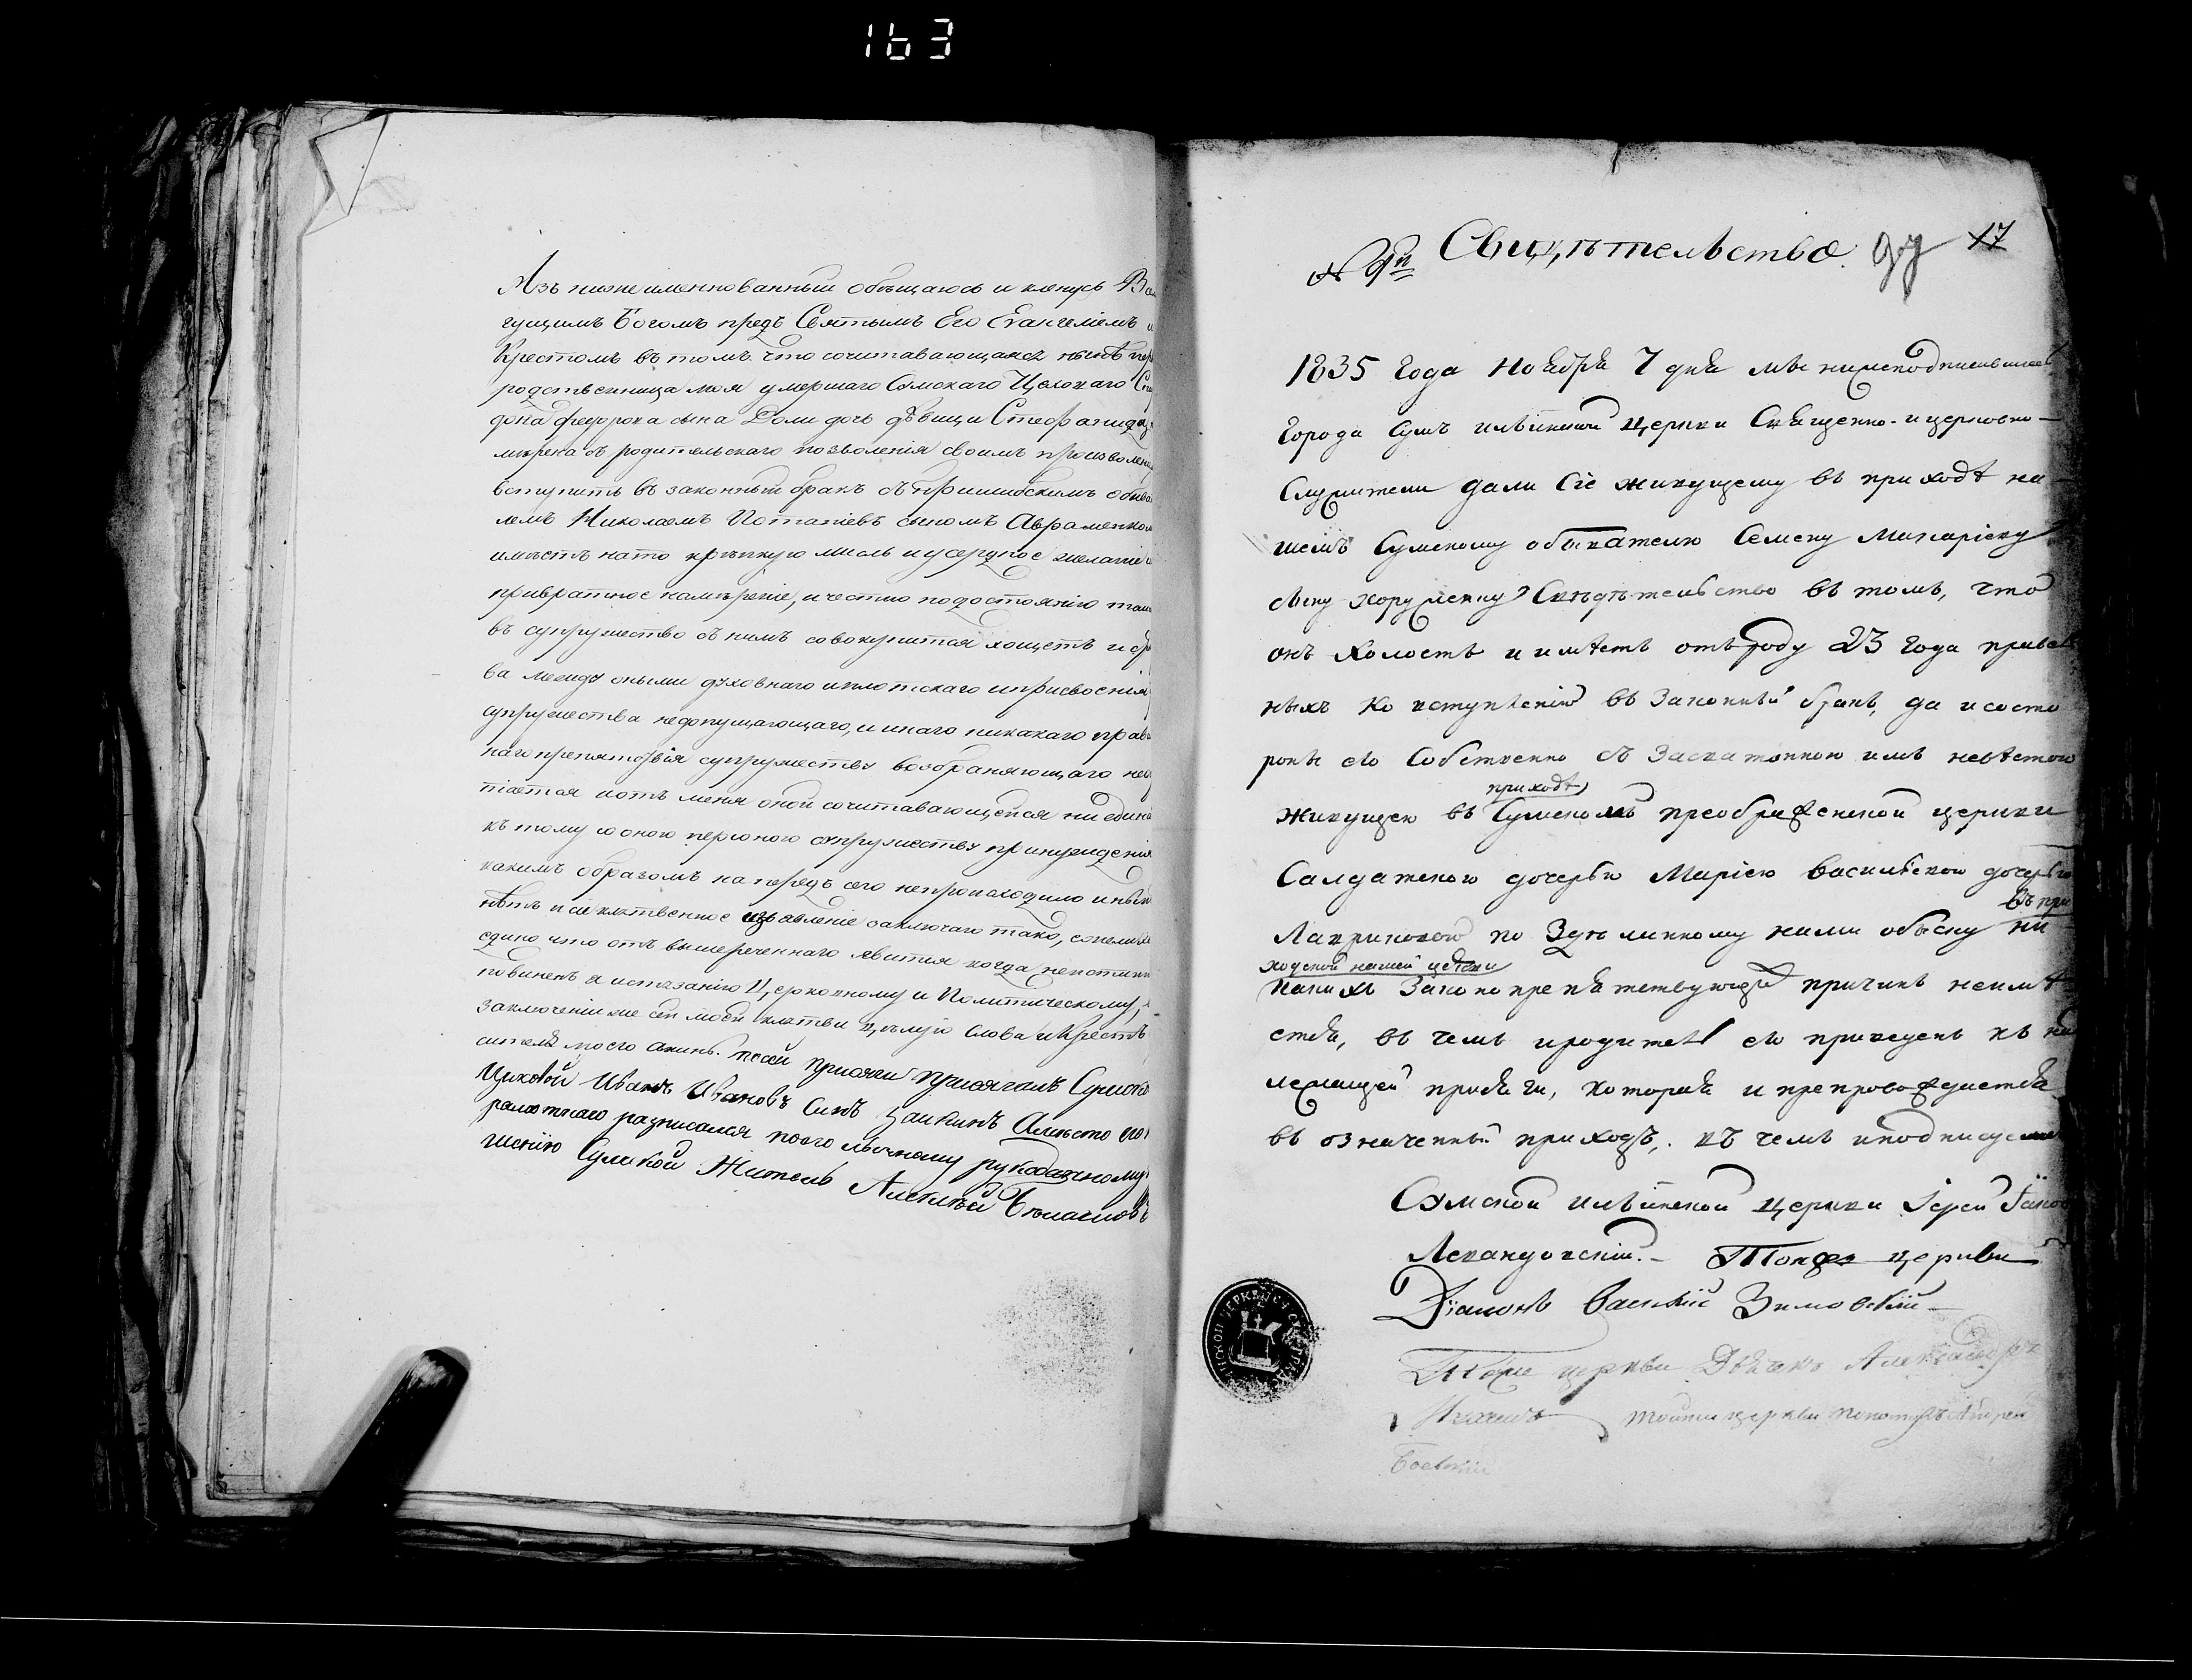 163
Азъ нижеименнованный обѣщаюсь и кленусь В
гущимъ Богомъ предъ Святымъ Его Евангелiемъ и
Крестомъ въ томъ что сочитавающаяся нынѣ
родственница моя умершаго Сумскаго Цеховаго
дона Федорова сына Доли дочь дѣвица Стефанида
съ родительскаго позволенiя своимъ
вступить въ законный бракъ съ
лемъ Николаемъ Потапiевъ сыномъ Авраменком
имѣетъ на то крѣпкую мысль и усердное желанiе
превратное намѣренiе, и честно по достоянiю
въ супружество съ нимъ совокупится хощетъ и
ва между оными духовнаго и плотскаго и присвоенiя
супружества недопущающаго, и инаго никакаго прав
наго препятствiя супружеству возбраняющаго не
тается и отъ меня оной сочитавающейся ни един
къ тому со оною персоною супружеству принужденiя
какимъ образомъ напредъ сего непроисходило и нын
нѣтъ и сiе клятвенное изъявленiе заключаю тако, если
едино что отъ вышереченнаго явится когда неистин
повиненъ я истязанiю Церковному и Политическому,
заключенiи же сей моей клятвы цѣлую Слова и Крестъ
сителя моего аминь. псей присяги присягалъ Сумско
Цховой Иванъ Ивановъ Синъ Заикинъ Амѣсто
рамотнаго разписался поего личному рукодачному
шенiю Сумской Житель Алексѣй
N 9й Свидѣтельство. 17
1835 года Ноября 7 дня мы нижеподписавшiеся
города Сумъ Ильинской церкви Священно- и церковно-
Служители дали сiе живущему въ приходѣ на-
шемъ Сумскому обывателю Семену Макарiеву
сыну Хоруженку Свѣдѣтельство въ томъ, что
онъ холостъ и имѣетъ отъ роду 23 года
ныхъ ко вступленiю въ Законный бракъ, да и состо
роны его Собственно съ Засватанною имъ невѣстою
приходѣ
живущею въ Сумскомъ преображенской церкви
Салдатскою дочерью Марiею Васильевою дочерью
въ при
Лавриновою по Здѣланному нами обыску ни-
ходской нашей церкви
какихъ Законопрепятствующихъ причинъ неимѣ
ется, въ чемъ и родитель его приведенъ къ на
лежащей присяги, которая и препровождается
въ означенный приходъ, въ чемъ и подписуемся
Сумской Ильинской Церкви Iерей Iаков
Левандовскiй. – Тояже церкви
Дiаконъ Василiй Зимовскiй –
Тояже церкви Дьячокъ Александръ
тойже церкви пономарь Андрей
Боевскiй